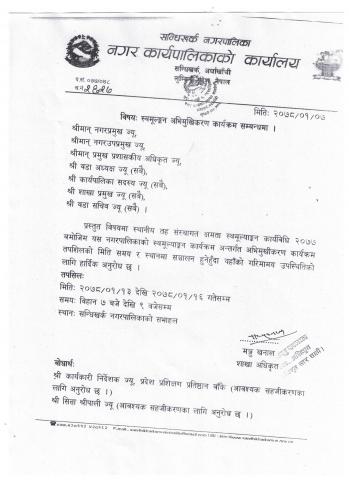 सन्धिखर्क नगरपालिका
नगर कार्यपालिकाको कार्यालय
सन्धिखर्क, अर्घाखाँची
प.सं. ०७७/०७८
च.नं. २४२७
मितिः २०७८/०१/०७
विषयः स्वमूल्याङ्कन अभिमुखिकरण कार्यक्रम सम्बन्धमा ।
श्रीमान् नगरप्रमुख ज्यू,
श्रीमान् नगरउपप्रमुख ज्यू,
श्रीमान् प्रमुख प्रशासकीय अधिकृत ज्यू,
श्री वडा अध्यक्ष ज्यू (सबै),
श्री कार्यपालिका सदस्य ज्यू (सबै),
श्री शाखा प्रमुख ज्यू (सबै),
श्री वडा सचिव ज्यू (सबै) ।
प्रस्तुत विषयमा स्थानीय तह संस्थागत क्षमता स्वमूल्याङ्कन कार्यविधि २०७७
बमोजिम यस नगरपालिकाको स्वमूल्याङ्कन कार्यक्रम अन्तर्गत अभिमुखिकरण कार्यक्रम
तपसिलको मिति समय र स्थानमा सञ्चालन हुनेहुँदा यहाँको गरिमामय उपस्थितिको
लागि हार्दिक अनुरोध छ ।
तपसिलः
मितिः २०७८/०१/१३ देखि २०७८/०१/१६ गतेसम्म
समयः विहान ७ बजे देखि ९ बजेसम्म
स्थानः सन्धिखर्क नगरपालिकाको सभाहल
मञ्जु खनाल
शाखा अधिकृत
बोधार्थः
श्री कार्यकारी निर्देशक ज्यू, प्रदेश प्रशिक्षण प्रतिष्ठान बाँके (आवश्यक सहजीकरणका
लागि अनुरोध छ ।)
श्री सिता श्रीपाली ज्यू (आवश्यक सहजीकरणका लागि अनुरोध छ ।)